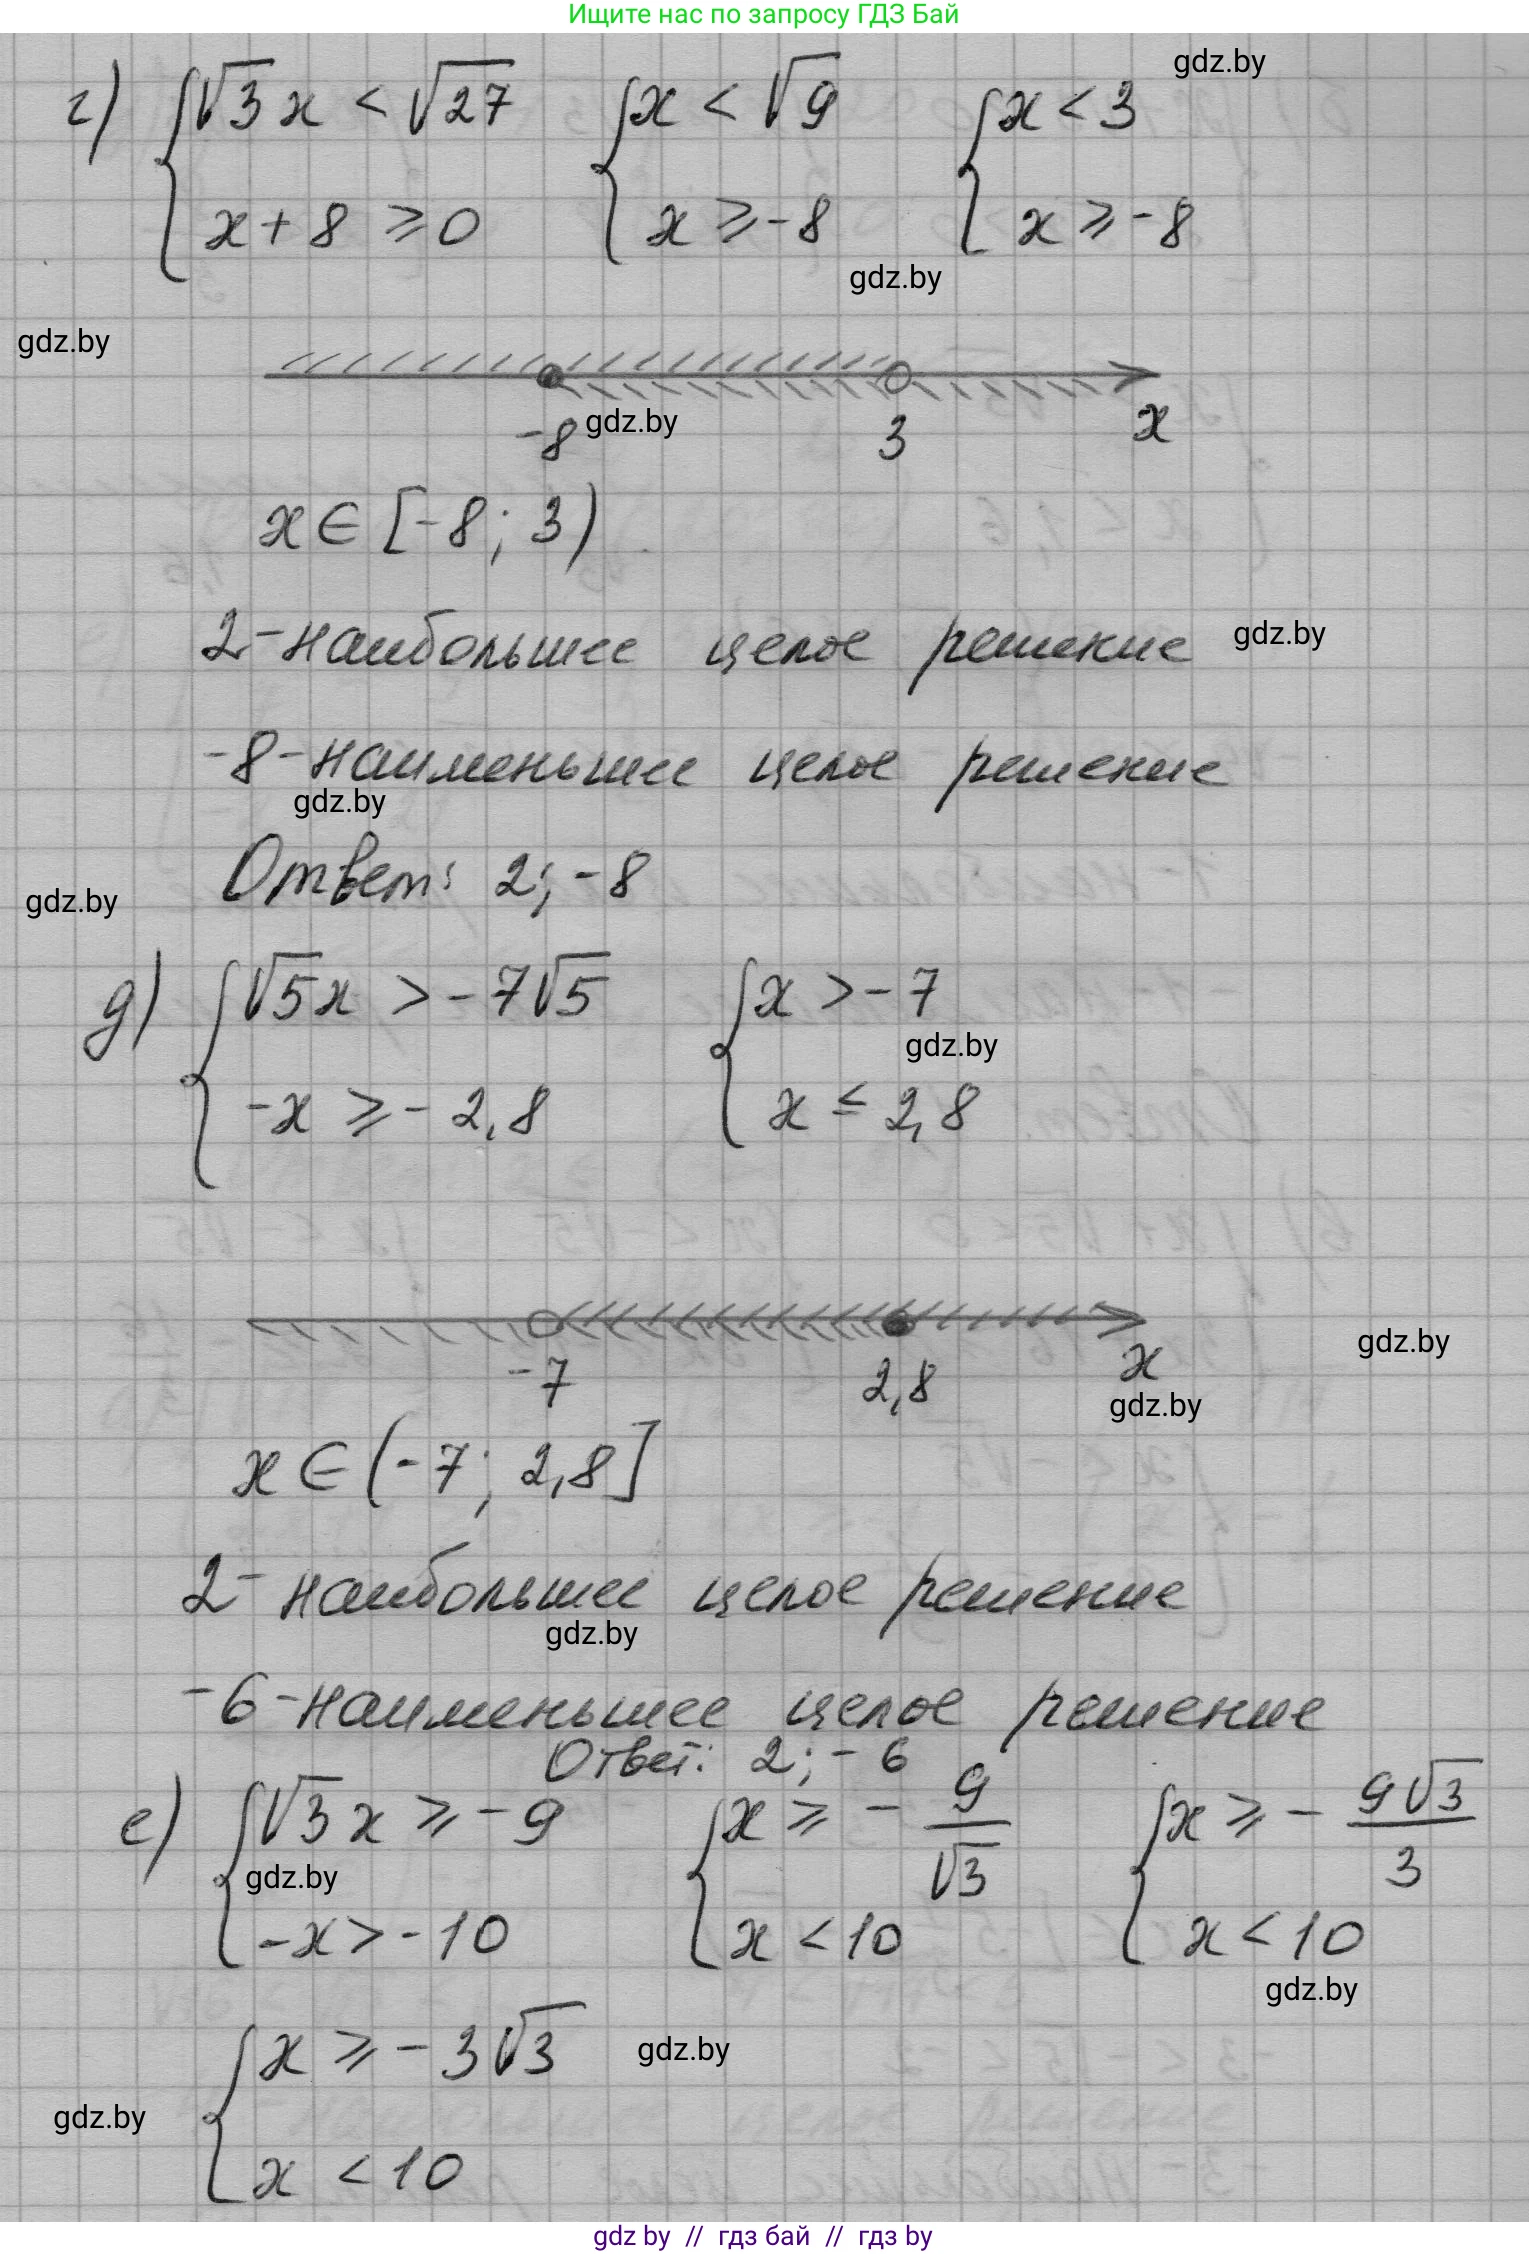 Ищите нас по запросу ГДЗ Бай
gdz.by
г) { √3x < √27 { x < √9 { x < 3
x + 8 ≥ 0 x ≥ -8 x ≥ -8
gdz.by
gdz.by
-8 gdz.by 3 x
x ∈ [-8; 3)
2 - наибольшее целое решение gdz.by
-8 - наименьшее целое решение
gdz.by
Ответ: 2; -8
gdz.by
д) { √5x > -7√5 { x > -7
gdz.by
-x ≥ -2,8 x ≤ 2,8
gdz.by
-7 2,8 x
gdz.by
x ∈ (-7; 2,8]
2 - наибольшее целое решение
gdz.by
-6 - наименьшее целое решение
Ответ: 2; -6
е) { √3x ≥ -9 { x ≥ - 9/√3 { x ≥ - 9√3/3
gdz.by
-x > -10 x < 10 x < 10
gdz.by
{ x ≥ -3√3 gdz.by
gdz.by
x < 10
gdz by // гдз бай // гдз by